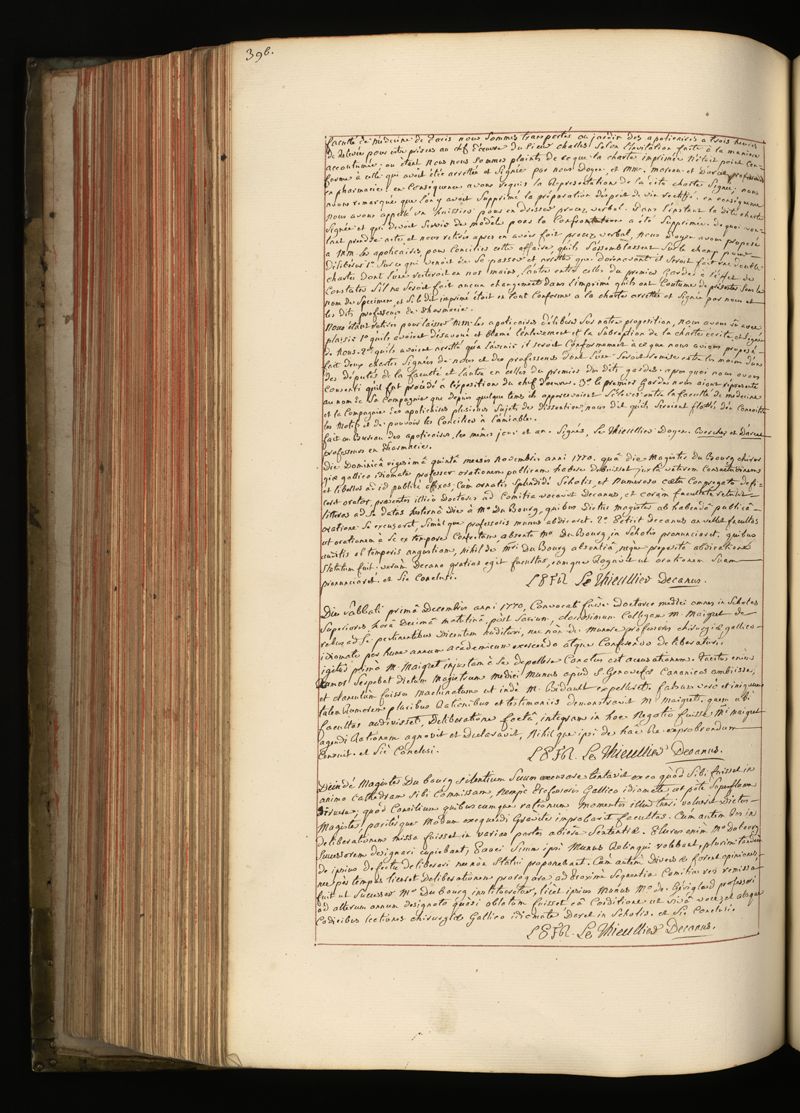 398.
faculté de médecine de Paris nous sommes transportés au jardin des apoticaires a trois heures
de relevée pour être présens au chef d'œuvre du sieur charles selon l'invitation faite à la manière
accoutumée; ou étant nous nous sommes plaints de ce que la charte imprimée n'étoit point con-
forme à celle qui avoit été arretée et signée par nous Doyen, et MM. professeurs
en pharmacie; en conséquence avons requis la représentation de la dite charte signée; nous
avons remarqué que l'on y avoit supprimé la préparation d'esprit de vin rectifié. en conséquence
nous avons appellé un huissier pour en dresser procez verbal. dans l'instant la dite charte
signée et qui devoit servir de modèle pour la confrontation a été supprimée. de quoi nous
fait prendre acte, et nous retirés apres en avoir fait procez verbal, nous Doyen avons proposé
a MM. les apoticaires, pour concilier cette affaire, qu'ils s'assemblassent sur le champ pour
délibérer 1°. sur ce qui venoit de se passer et arretter que dorénavant il seroit fait une double
charte dont l'une resteroit en nos mains, l'autre entre celles du premier garde à l'effet de
constater s'il ne seroit fait aucun changement dans l'imprimé qu'ils ont coutume de présenter sous le
nom de specimen, et si le dit imprimé étoit en tout conforme a la charte arrettée et signée par nous et
les dits professeurs de Pharmacie.
Nous étant retirés pour laisser MM. les apoticaires délibérer sur notre proposition, nous avons vu avec
plaisir 1° qu'ils avoient désavoué et blamé l'enlevement et la subreption de la charte écrite et signée
de nous. 2° qu'ils avoient arretté qu'a l'avenir il seroit conformément à ce que nous avions proposé
fait deux chartes signées de nous et des professeurs dont l'une seroit remise entre les mains d'un
des députés de la faculté et l'autre en celles du premier des dits gardes. apres quoi nous avons
consenti qu'il fut procédé à l'exposition du chef d'œuvre. 3° le premier garde nous aiant représenté
au nom de sa compagnie que depuis quelque tems et appercevoient s'élever entre la faculté de médecine
et la compagnie des apoticaires plusieurs sujets de dissention; nous dit qu'ils seroient flattés d'en connoitre
les motifs et de pouvoir les concilier à l'amiable.
fait au bureau des apoticaires, les mêmes jour et an. Signés, Le Thieullier Doyen.
professeurs en Pharmacie.
Die Dominicâ vigesimâ quintâ mensis novembris anni 1770. quâ die Magister du Bourg chirur
giæ gallico idiomate professor orationem publicam habere debuisset juxtà veterem consuetudinem
et libellos ad id publicè affixos, cum ornatis splendidè scholis, et numeroso cœtu congregato defi-
ceret orator, præsentes illicò doctores ad comitia vocavit Decanus, et coram facultate retulit
litteras ad se datas hesternâ die à M° du Bourg, quibus dictus magister ab habendâ publicâ
oratione se excusaret, simulque professoris munus abdicaret. 2°. petiit decanus an vellet facultas
ut orationem à se ex tempore confectam absente M° du Bourg, in scholis pronunciaret. quibus
auditis ob temporis angustiam, nihil de Mri du Bourg absentiâ, neque propositâ abdicatione
statutum fuit. verum decano gratias egit facultas, eumque rogavit ut orationem suam
pronunciaret. et sic conclusi.
Le Thieullier Decanus.
Die sabbati primâ Decembris anni 1770, convocati fuere doctores medici omnes in scholas
superiores horâ decimâ matutinâ, post sacrum, clarissimum collegam M. Maigret de
rebus ad se pertinentibus dicentem audituri, nec non de munere professoris chirurgiæ gallico
idiomate per hunc annum academicum exercendo atque conferendo deliberaturi.
igitur primò M. Maigret injustam à se depellere conatus est accusationem. facitus enim
rumor serpebat dictum magistrum medici munus apud S. Genovefæ canonicos ambiisse,
et clanculùm fuisse machinatum ut indè M. expelleret. falsum verò et iniquum
talem rumorem pluribus rationibus et testimoniis demonstravit Mr Maigret; quem ubi
facultas audivisset, deliberatione factâ, integram in hoc negotio fuisse Mri Maigret
agendi rationem agnovit et declaravit, nihilque ipsi de hac re exprobrandum
censuit. et sic conclusi.
Le Thieullier Decanus.
Deindè Magister du bourg silentium suum excusare tentavit ex eo quòd sibi fuisset in
animo cathedram sibi commissam, nempè professoris gallico idiomate ut pote superfluam
; quod consilium quibuscumque rationum momentis illustrari voluerit dictus
Magister, pariterque modum exequendi graviter improbavit facultas. Cum autem res in
deliberationem missa fuisset in varias partes abiere sententiæ. Plures enim M° du bourg
successorem designari cupiebant; pauci suum ipsi munus relinqui volebant; plurimi tandem
de ipsius defectu deliberari nec non statui proponebant. Cum autem diversæ forent opiniones,
nec per tempus liceret deliberationem prorogare, ad proxime sequentia comitia res remissa
fuit ut successor M° du Bourg institueretur, licet ipsius munus M° de professori
ad alterum annum designato quasi oblatum fuisset eâ conditione ut vivâ voce, et absque
codicibus lectiones chirurgicæ gallico idiomate daret in scholis. et sic conclusi.
Le Thieullier Decanus.